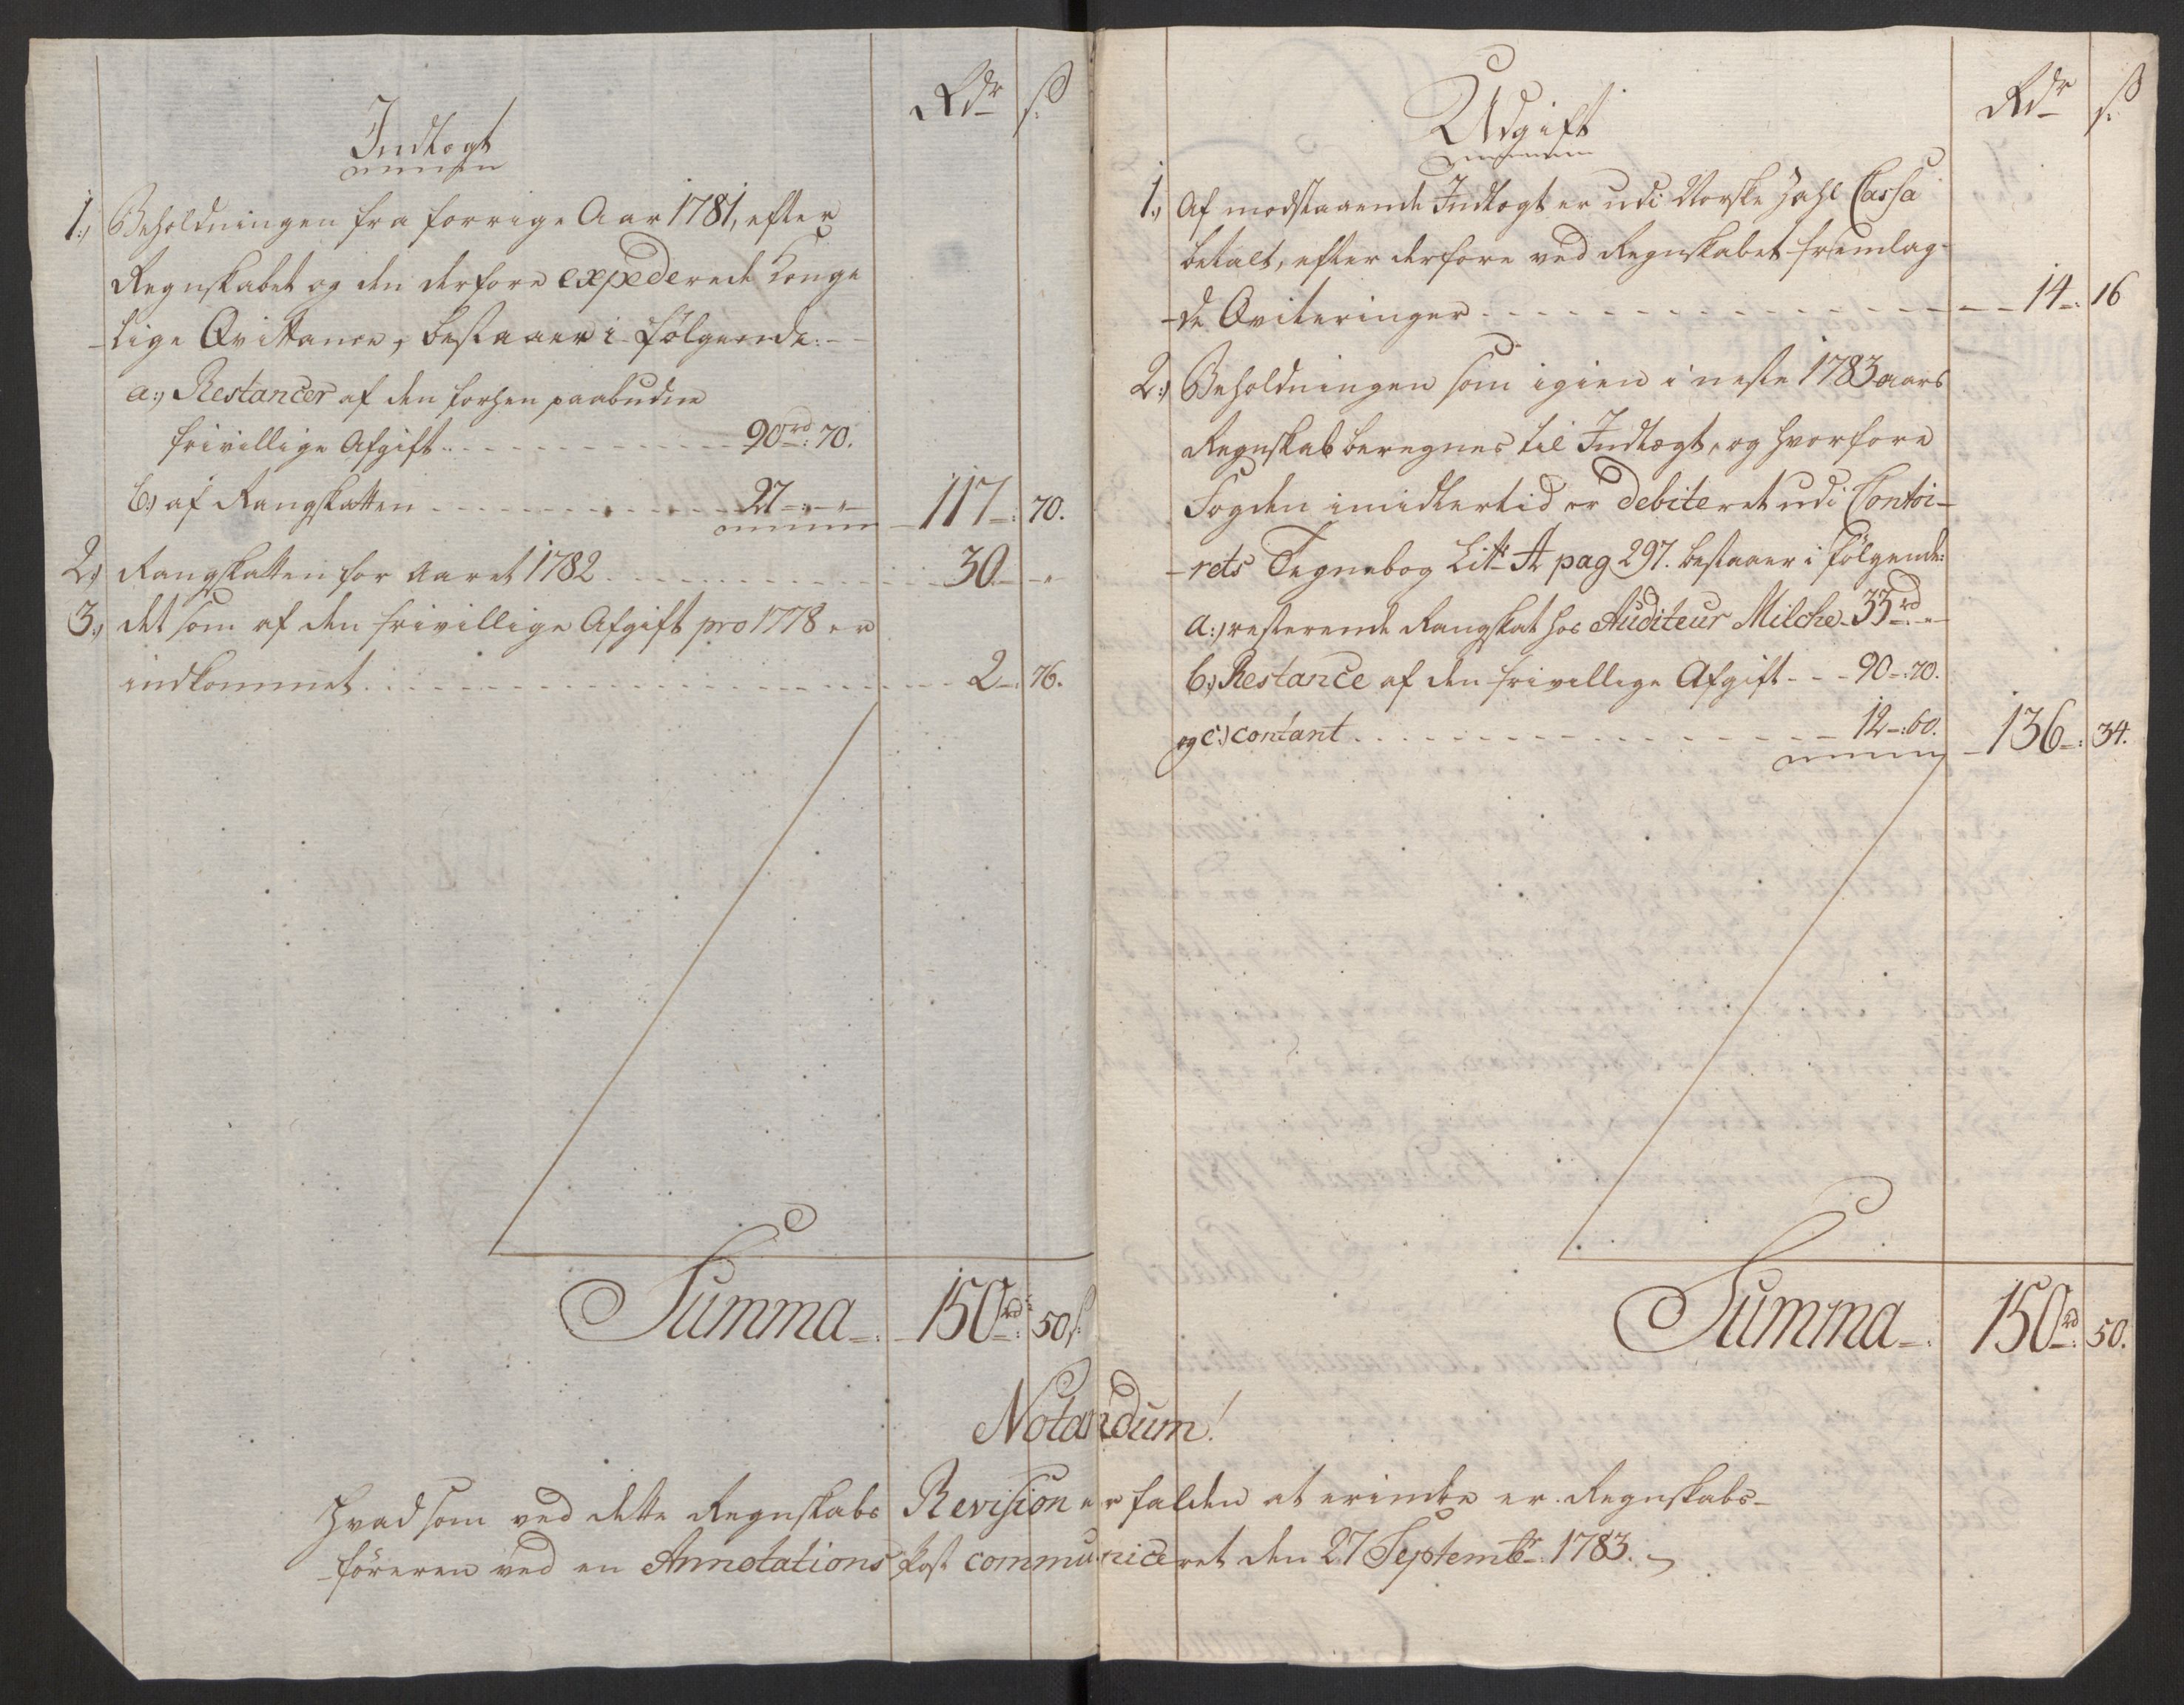 Rdr ß
Indtægt
1., Beholdningen fra forrige Aar 1781, efter
Regnskabet og den derfore expederede Konge
-lige Qvittance, bestaaer i følgende:
a., Restancer af den forhen paabudne
frivillige Afgift 90rd: 70.
b., af Rangskatten 27 - " - 117 -: 70.
2., Rangskatten for Aaret 1782 30 - "
3., det som af den frivillige Afgift pro 1778 er
indkommet 2 -: 76.
Summa 150rd: 50ß
Rdr ß
Udgift
1., Af modstaaende Indtægt er udi Norske Zahl Cassa
betalt, efter derfore ved Regnskabet fremlag-
-de Qviteringer 14 -: 16
2., Beholdningen som igien i neste 1783 aars
Regnskab beregnes til Indtægt, og hvorfore
Fogden imidlertid er debiteret udi Contoi-
-rets Tegnebog Litr A pag 297. bestaaer i følgende:
a., resterende Rangskat hos Auditeur Milche 33rd "
b., Restance af den frivillige Afgift 90 -: 70.
og c., contant 12 -: 60. 136 -: 34.
Summa 150rd: 50.
Notandum!
Hvad som ved dette Regnskabs Revision er falden at erindre er Regnskabs-
-føreren ved en Annotations Post communiceret den 27 Septembr: 1783.